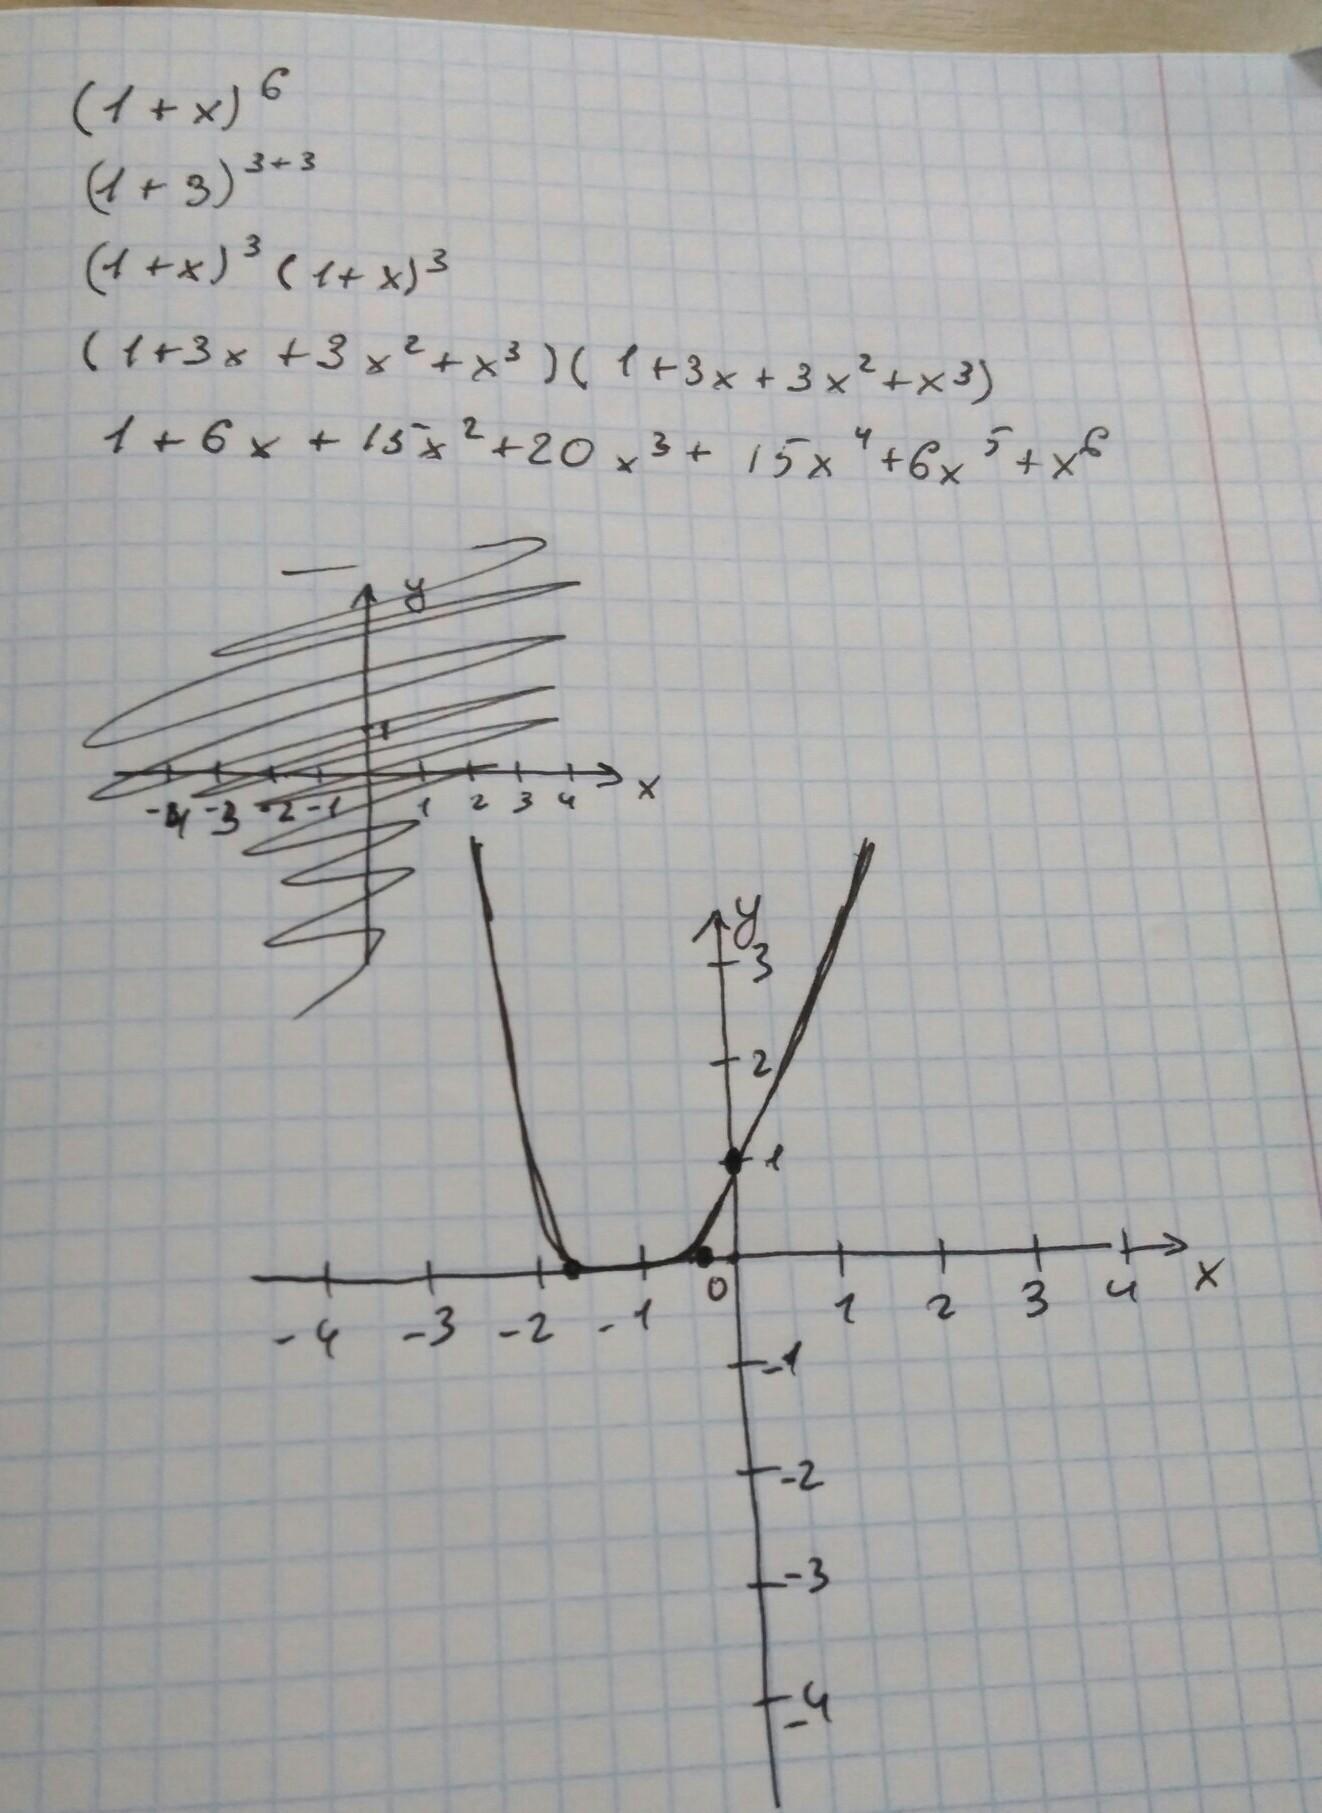 (1 + x)^6
(1 + 3)^{3+3}
(1 + x)^3 (1 + x)^3
(1 + 3x + 3x^2 + x^3)(1 + 3x + 3x^2 + x^3)
1 + 6x + 15x^2 + 20x^3 + 15x^4 + 6x^5 + x^6
y
1
-4 -3 -2 -1 1 2 3 4 x
y
3
2
1
-4 -3 -2 -1 0 1 2 3 4 x
-1
-2
-3
-4